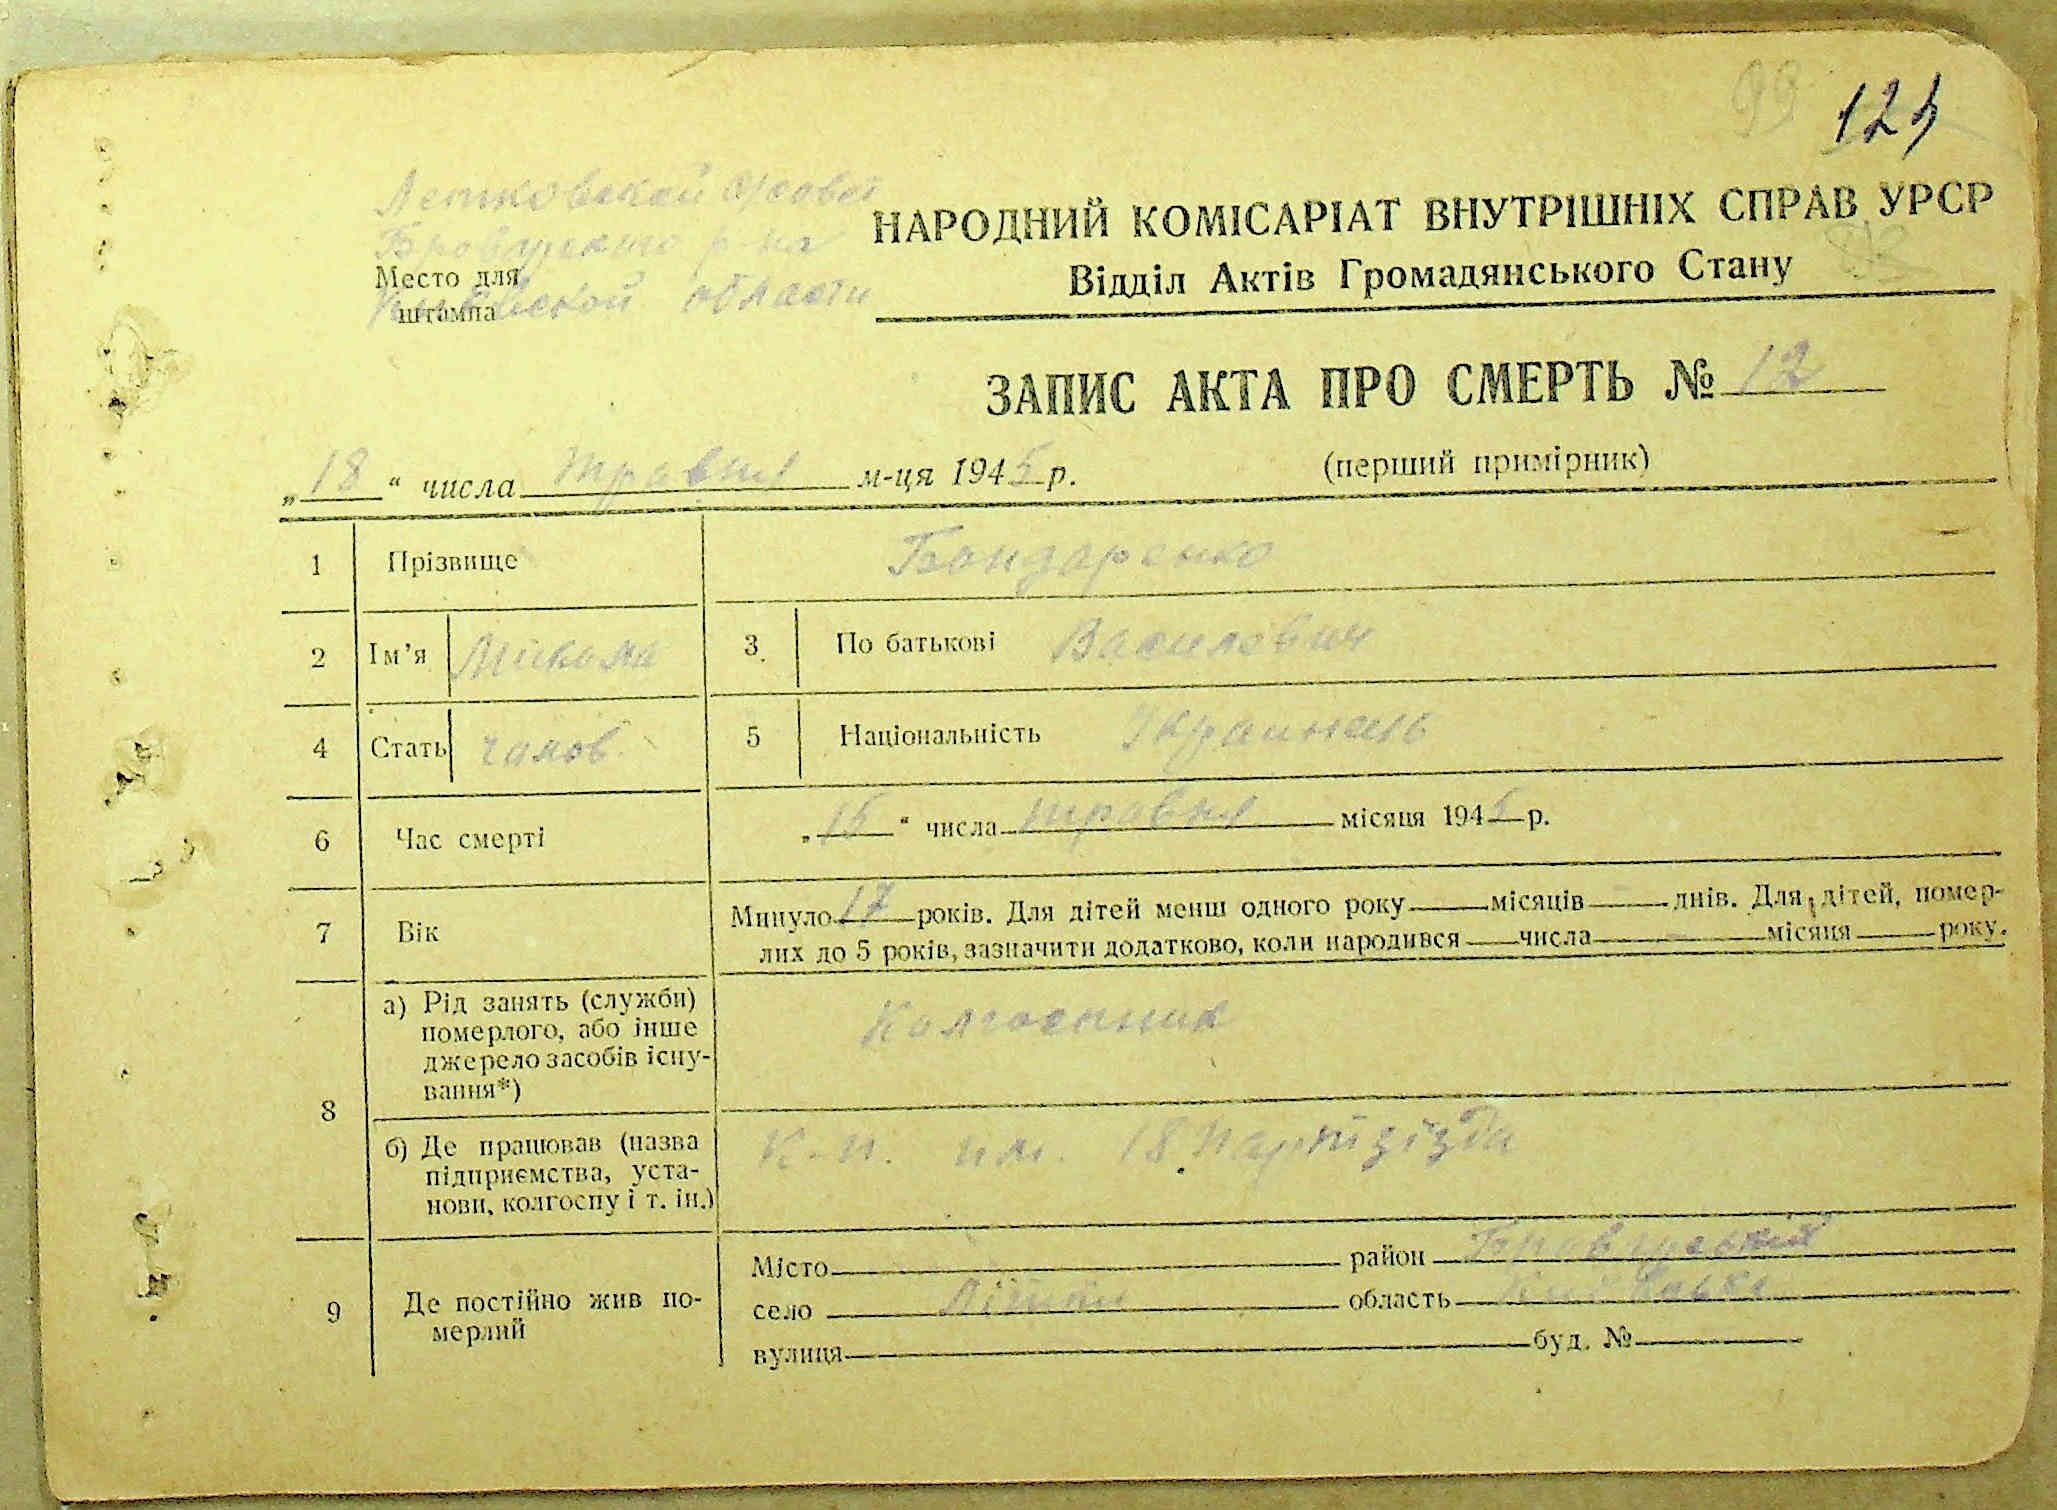 99 124
Летковской с/совет
Броварского р-на
Киевской области
Место для
штампа
НАРОДНИЙ КОМІСАРІАТ ВНУТРІШНІХ СПРАВ УРСР
Відділ Актів Громадянського Стану
ЗАПИС АКТА ПРО СМЕРТЬ № 12
(перший примірник)
„18“ числа травня м-ця 1945 р.
1 Прізвище Бондаренко
2 Ім’я Микола 3 По батькові Василович
4 Стать чолов. 5 Національність Украинець
6 Час смерті „15“ числа травня місяця 1945 р.
7 Вік Минуло 17 років. Для дітей менш одного року місяців днів. Для дітей, помер-
лих до 5 років, зазначити додатково, коли народився числа місяця року.
8 а) Рід занять (служби)
померлого, або інше
джерело засобів існу-
вання*)
Колгоспник
б) Де працював (назва
підприємства, уста-
нови, колгоспу і т. ін.)
К-п. им. 18 Партзізда
9 Де постійно жив по-
мерлий
Місто район Броварський
село Літки область Київська
вулиця буд. №